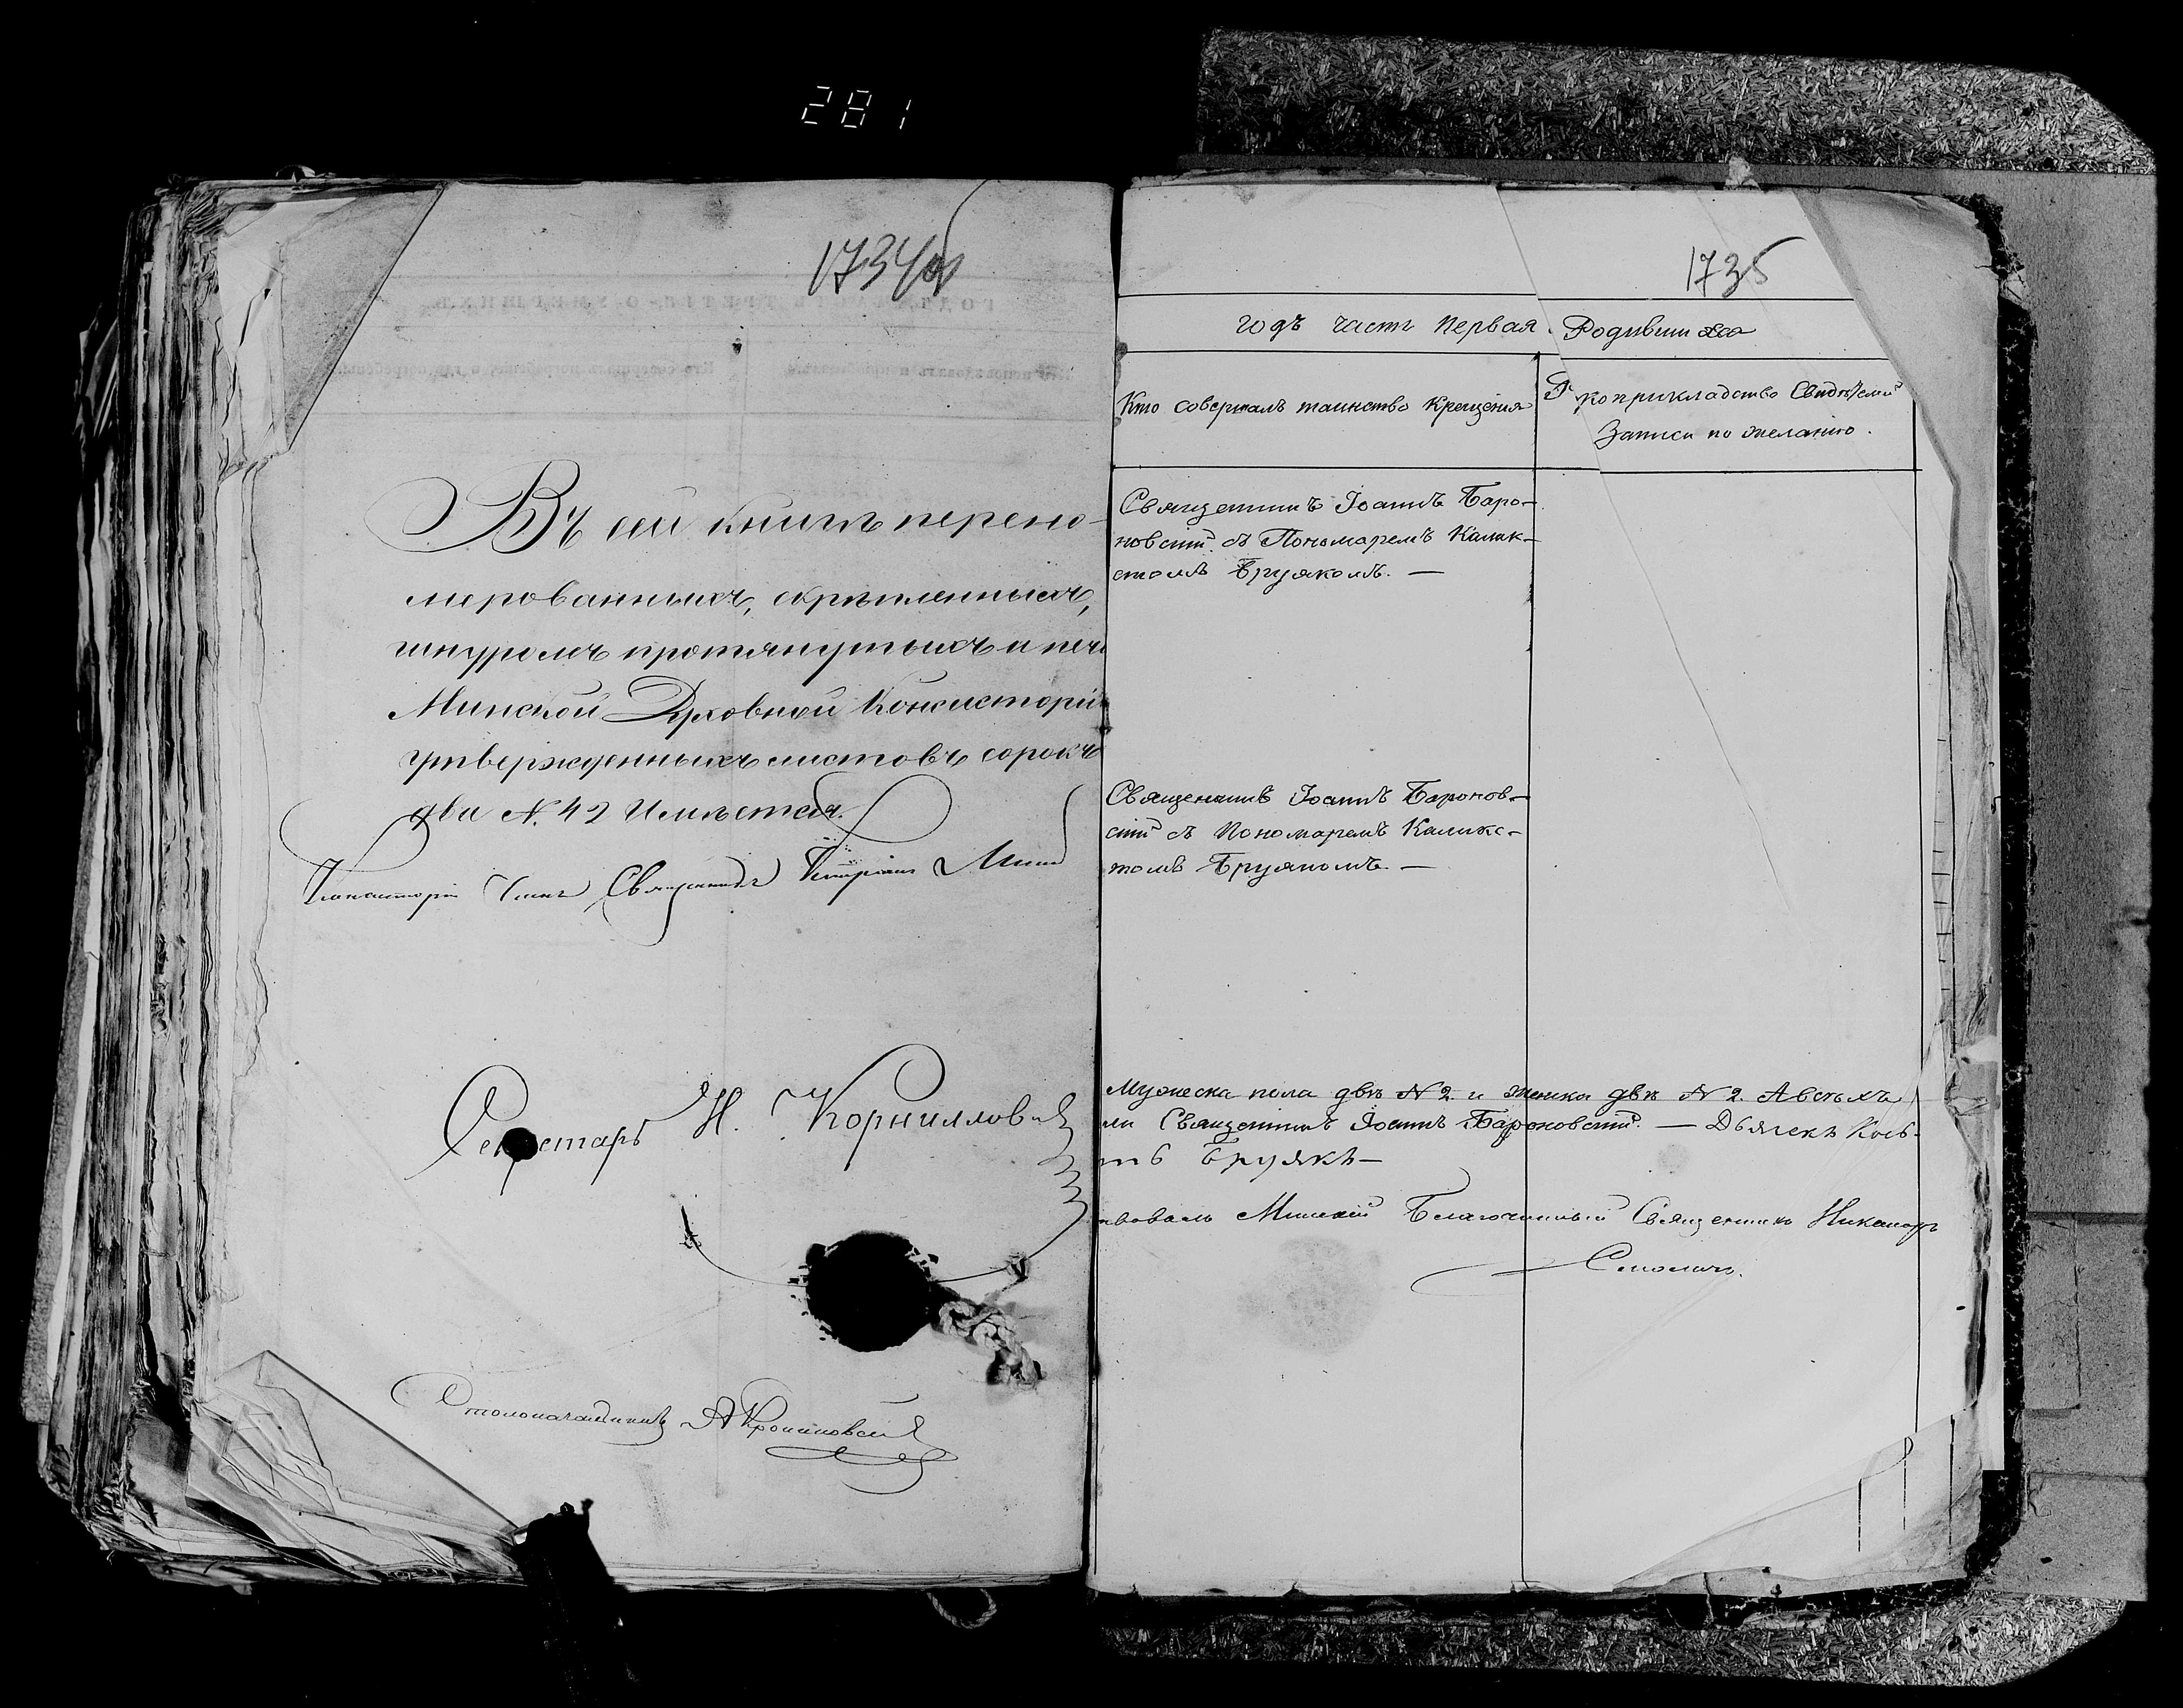 281
1734об
Въ сей книгѣ перено-
мерованныхъ, скрѣпленныхъ,
шнуромъ протянутыхъ и печа
Минской Духовной Консисторіи
утвержденныхъ листовъ сорокъ
два N. 42 Имѣется.
Консисторіи Членъ Священникъ
Секретарь Н. Корниллович
Столоначальникъ
1735
годъ часть первая. Родивши хся
Кто совершалъ таинство крещенія
Рукоприкладство Свидѣтелей
Записи по желанію.
Священникъ Іоаннъ Баро-
новскій съ Пономаремъ Калик-
стомъ Бруякомъ. —
Священникъ Іоаннъ Баронов-
скій съ Пономаремъ Каликс-
томъ Бруякомъ. —
Мужеска пола двѣ N 2 и женска двѣ N 2.
ли Священникъ Іоаннъ Бароновскій. — Дьячекъ
Бруякъ —
твовалъ Минскій Благочинный Священникъ Никаноръ
Смоличъ.